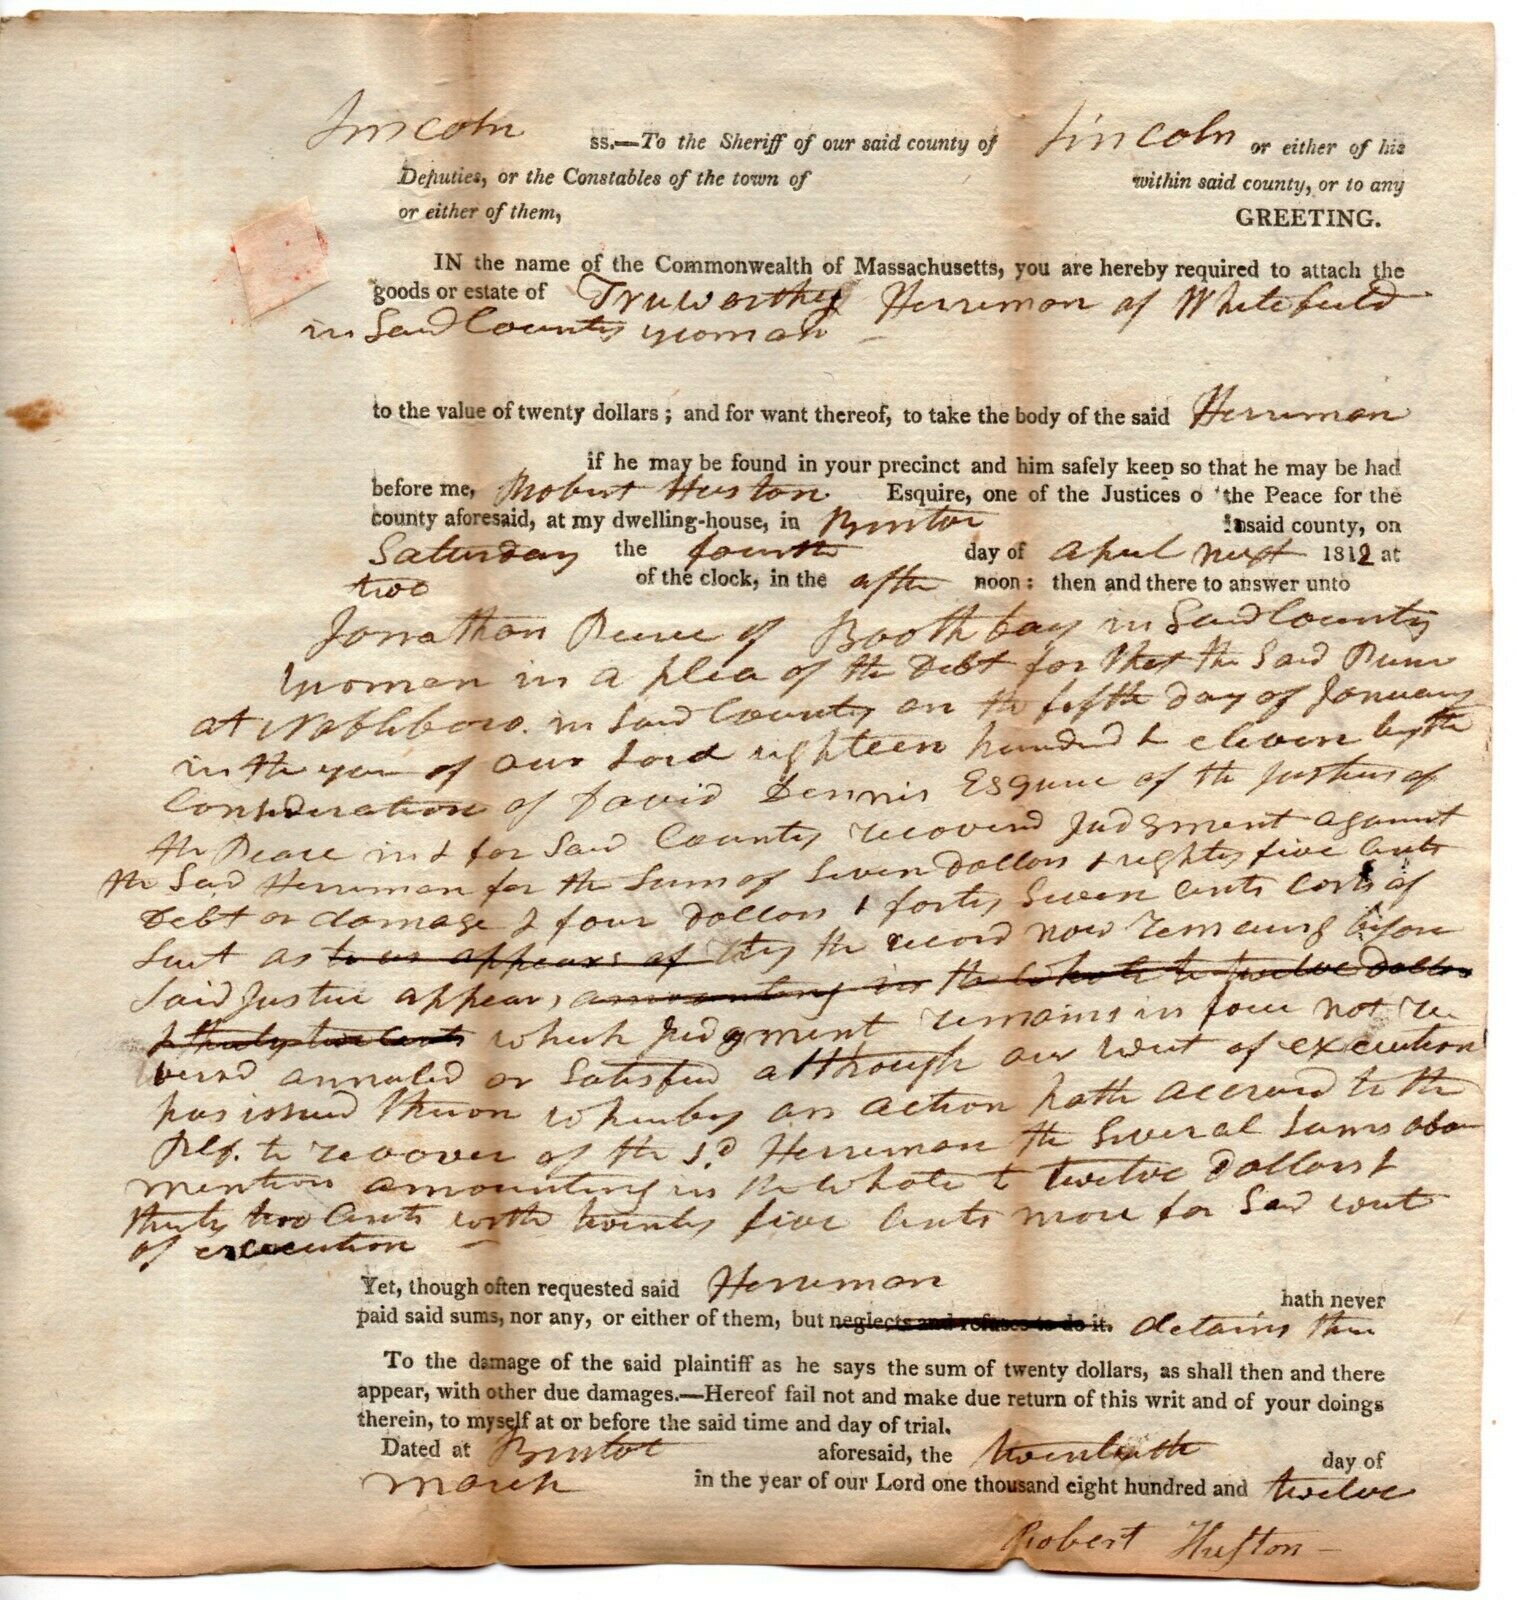 Lincoln ss.—To the Sheriff of our said county of Lincoln or either of his
Deputies, or the Constables of the town of within said county, or to any
or either of them, GREETING.
IN the name of the Commonwealth of Massachusetts, you are hereby required to attach the
goods or estate of Truworthy Herriman of Whitefield
in Said County yeoman
to the value of twenty dollars; and for want thereof, to take the body of the said Herriman
if he may be found in your precinct and him safely keep so that he may be had
before me, Robert Huston Esquire, one of the Justices o the Peace for the
county aforesaid, at my dwelling-house, in Bristol in said county, on
Saturday the fourth day of april next 1812 at
two of the clock, in the after noon: then and there to answer unto
Jonathan of Boothbay in Said County
yoman in a plea of the Debt for that the Said
at Nobleboro. in Said County on the fifth day of January
in the year of our Lord eighteen hundred & eleven by the
Consideration of David Dennis Esquire of the Justices of
the Peace in & for Said County recoverd Judgment against
the Said Herriman for the Sum of Seven Dollars & eighty five Cents
Debt or damage & four Dollars & forty Seven Cents Costs of
Suit as to us appears of by the record now remaing before
Said Justice appears, amounting in the whole to twelve Dollars
& thirty two Cents which Judgment remains in force not re
versd annuled or Satisfied although our writ of execution
has issued theron wherby an action hath accrued to the
Plf. to recover of the sd Herriman the Several Sums above
mention amounting in the whole to twelve Dollars &
thirty two Cents with twenty five Cents more for Said writ
of execution
Yet, though often requested said Herriman hath never
paid said sums, nor any, or either of them, but neglects and refuses to do it. detains them
To the damage of the said plaintiff as he says the sum of twenty dollars, as shall then and there
appear, with other due damages.—Hereof fail not and make due return of this writ and of your doings
therein, to myself at or before the said time and day of trial.
Dated at Bristol aforesaid, the twentieth day of
March in the year of our Lord one thousand eight hundred and twelve
Robert Huston